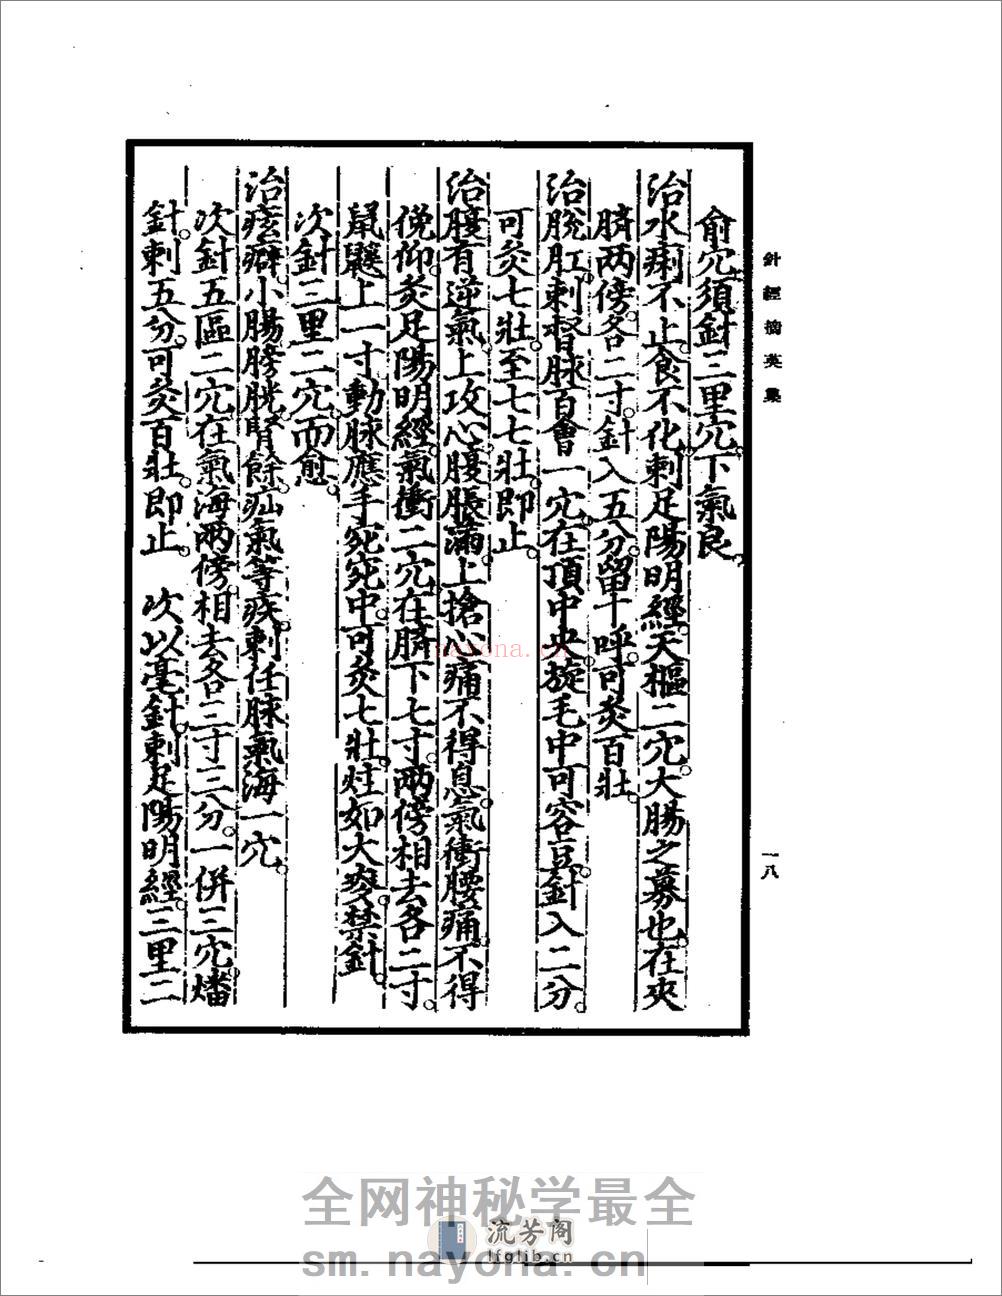 針經摘英集
一八
俞穴須針三里穴下氣良。
治水痢不止。食不化。刺足陽明經。天樞二穴。大腸之募也。在夾
臍兩傍。各二寸。針入五分。留十呼。可灸百壯。
治脫肛。刺督脉百會一穴。在頂中央旋毛中可容豆。針入二分。
可灸七壯。至七七壯即止。
治腹有逆氣。上攻心。腹脹滿。上搶心痛不得息。氣衝腰痛。不得
俛仰。灸足陽明經。氣衝二穴。在臍下七寸。兩傍相去各二寸。
鼠鼷上一寸。動脉應手宛宛中。可灸七壯。炷如大麥。禁針。
次針三里二穴。而愈。
治痃癖。小腸膀胱。腎餘。疝氣等疾。刺任脉氣海一穴。
次針五區二穴。在氣海兩傍。相去各三寸三分。一併三穴。燔
針。刺五分。可灸百壯。即止。 次以毫針。刺足陽明經。三里二
nayona.cn
全网神秘学最全
流芳阁
lfglib.cn
sm.nayona.cn